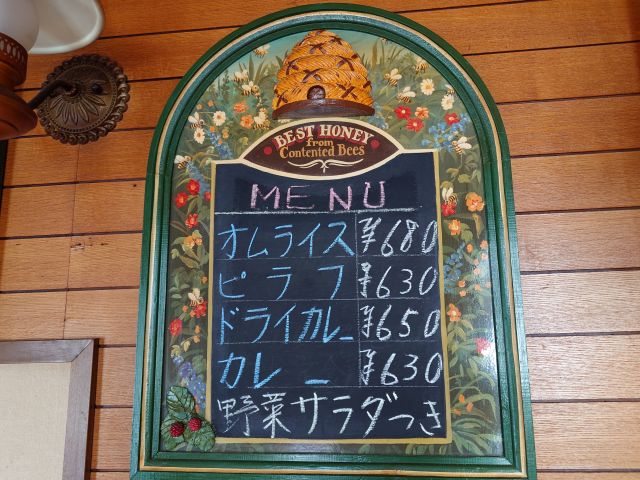 BEST HONEY
from
Contented Bees
MENU
オムライス ¥680
ピラフ ¥630
ドライカレー ¥650
カレー ¥630
野菜サラダつき